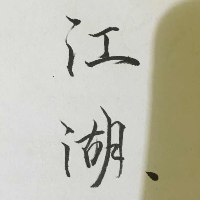 江湖、